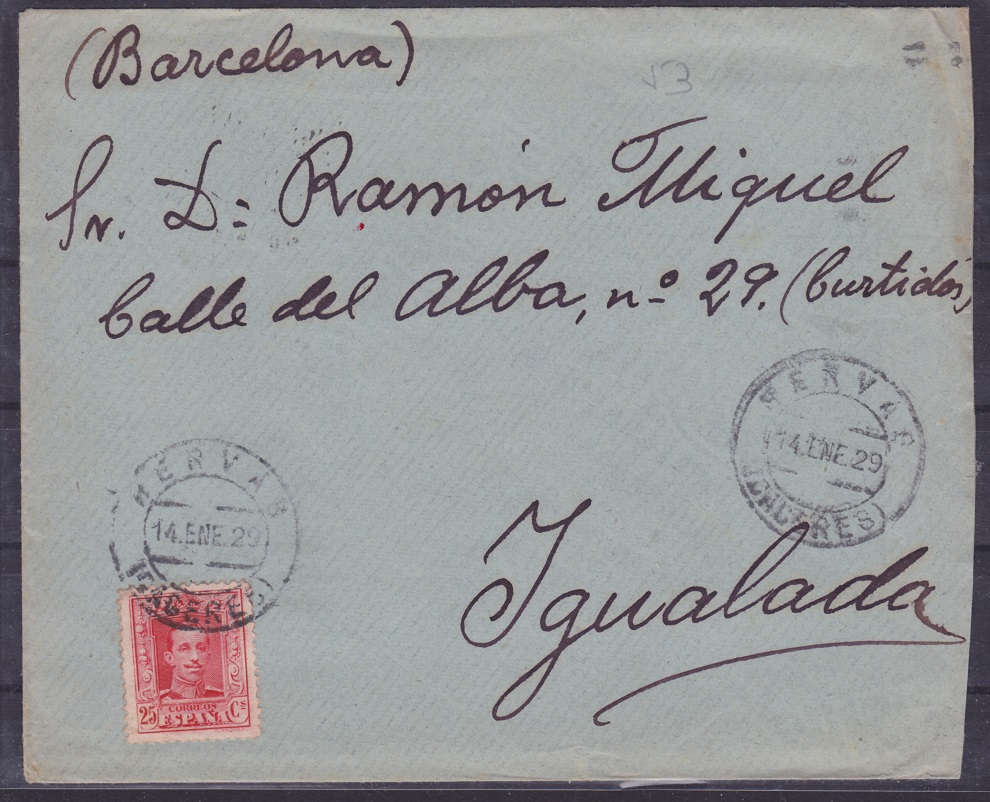 (Barcelona)
53
Sr. D: Ramón Miguel
Calle del Alba, nº 29. (Curtidos)
HERVAS
14.ENE.29
(CACERES)
HERVAS
14.ENE.29
(CACERES)
Igualada
CORREOS
25 ESPAÑA Cs